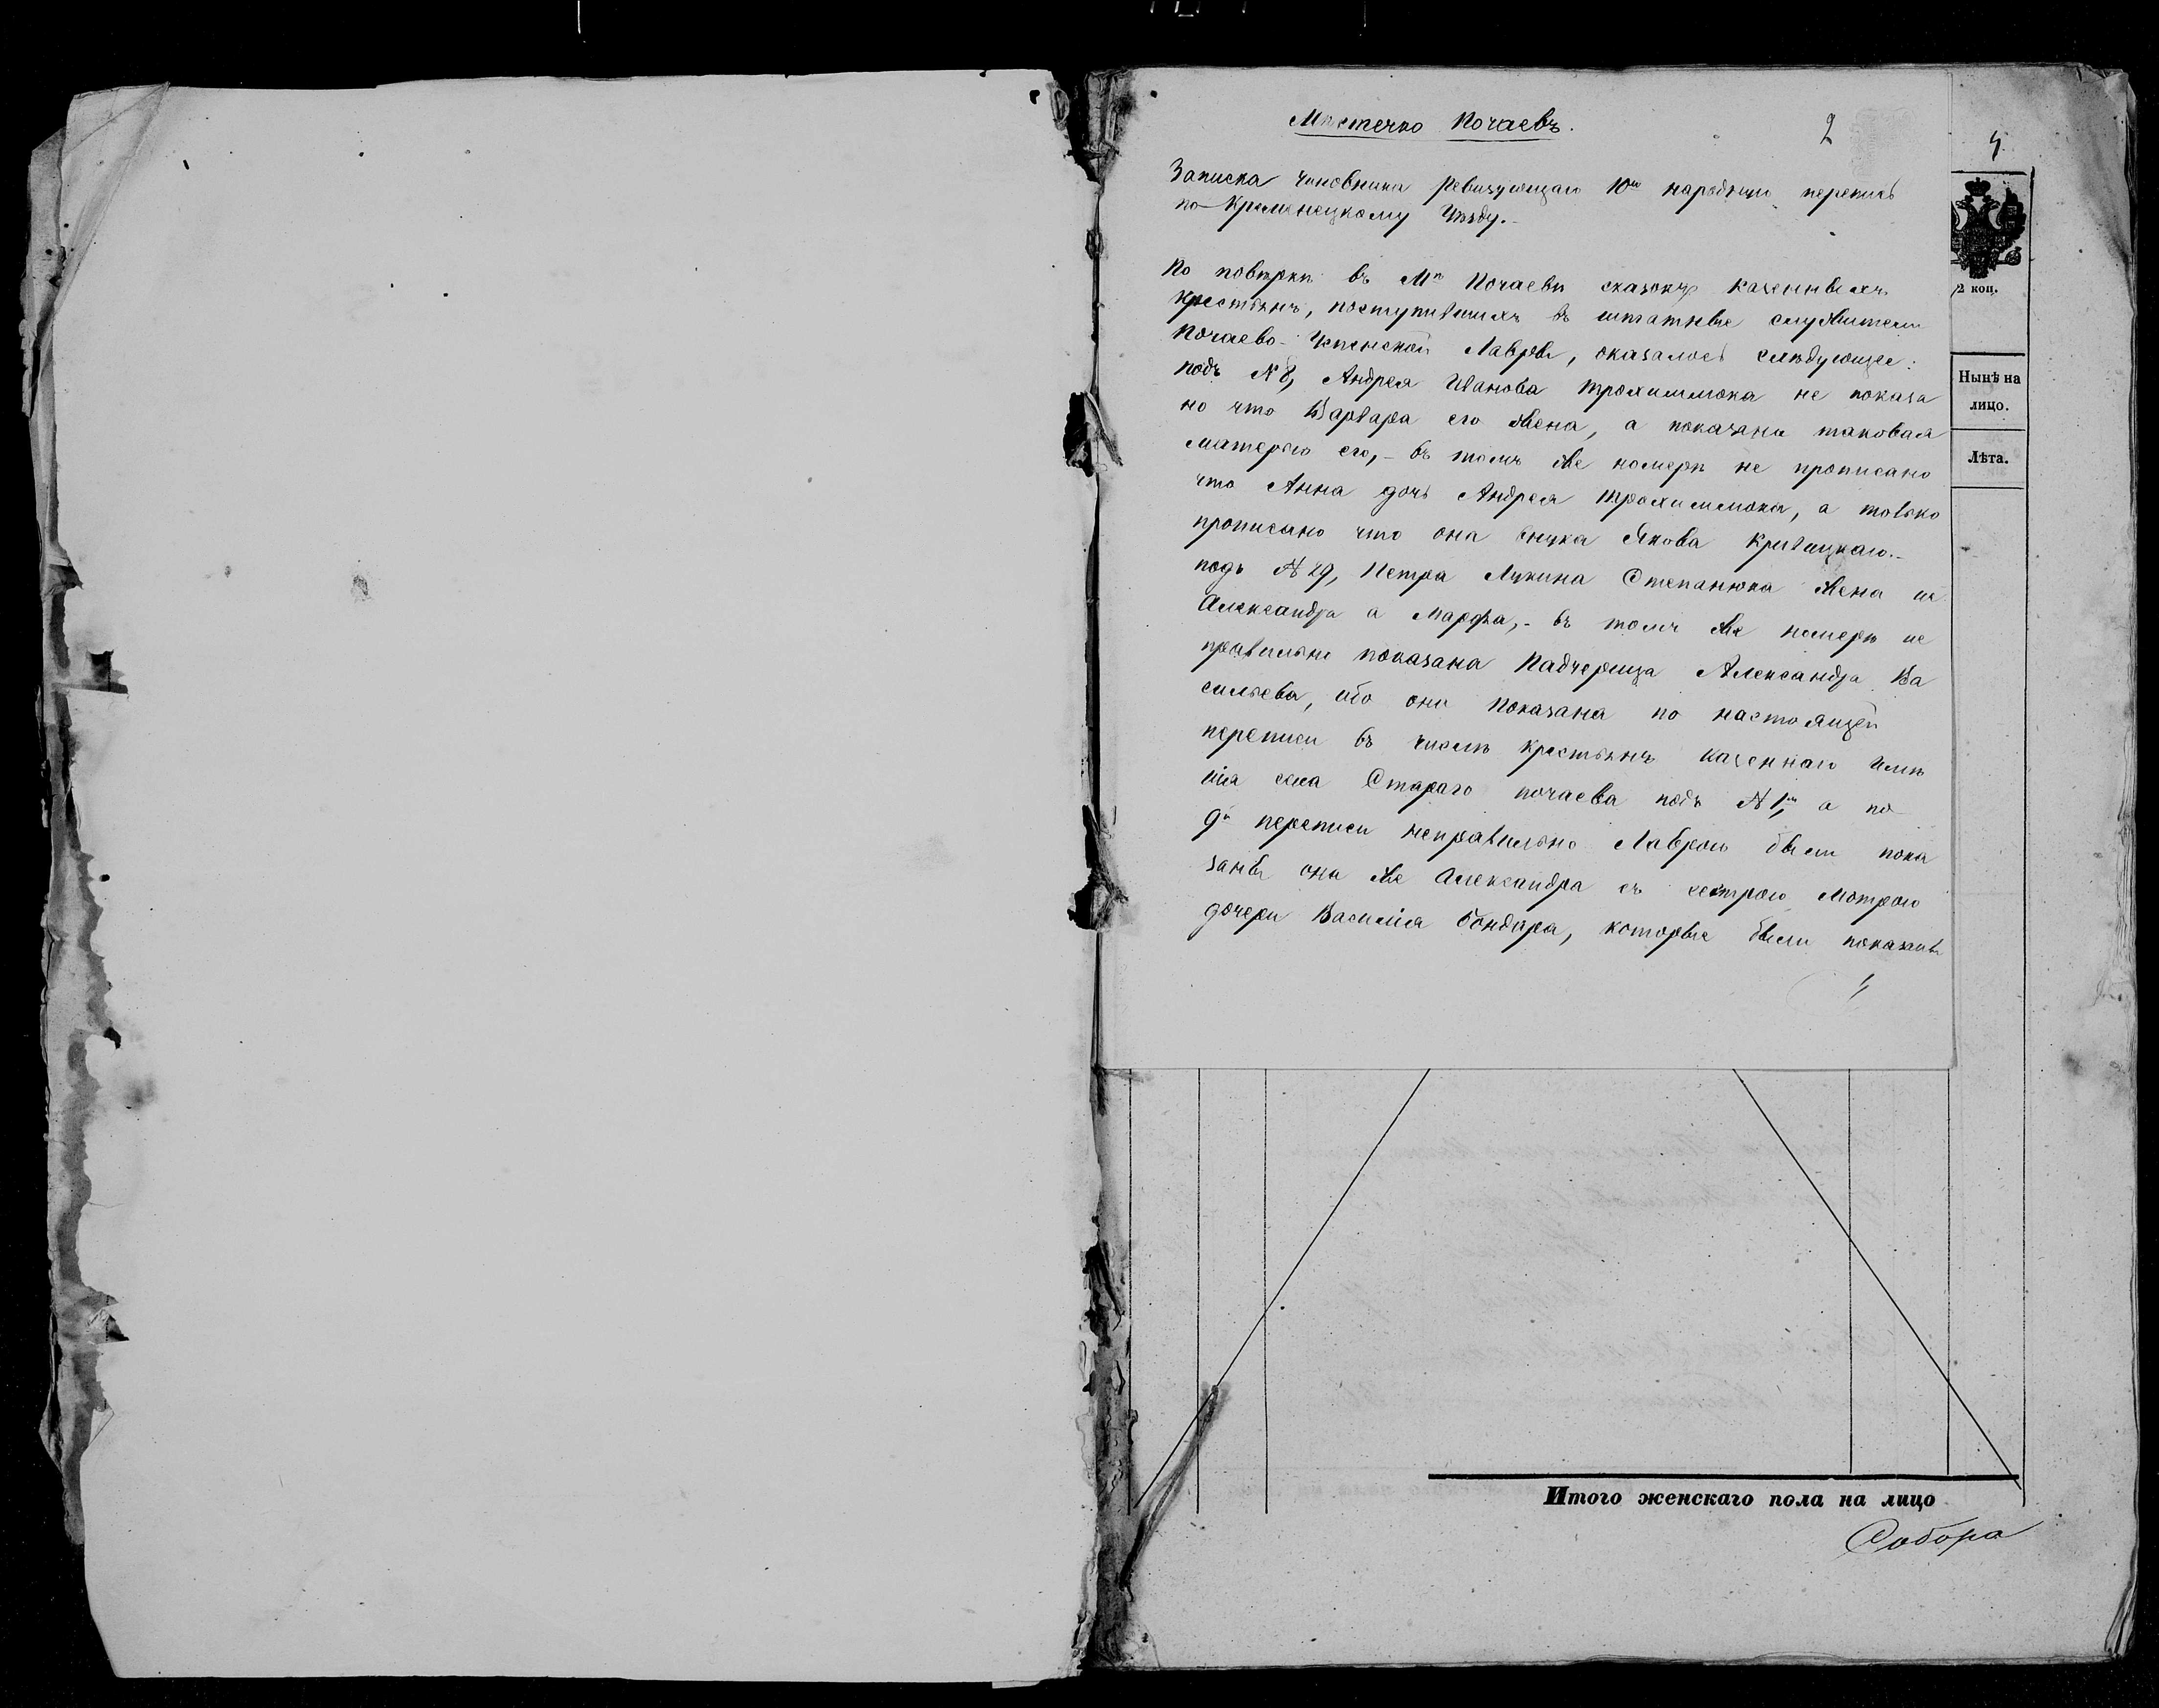 Мѣстечко Почаевъ.
2
4
Записка чиновника ревизующаго 10ю народную перепись
по Кременецкому Уѣзду.
2 коп.
По повѣркѣ въ Мѣ Почаевѣ сказокъ казенныхъ
крестьянъ, поступившихъ въ штатные служители
Почаево-Успенской Лавры, оказалось слѣдующее:
подъ № 8, Андрея Иванова Трохимлюка не показа
но что Варвара его жена, а показана таковая
матерью его, - въ томъ же номерѣ не прописано
что Анна дочь Андрея Трохимлюка, а только
прописано что она внука Якова Кривицкаго. -
подъ № 29, Петра Лукина Степанюка жена не
Александра а Марфа, - въ томъ же номерѣ не
правильно показана Падчерица Александра Ва
сильева, ибо она показана по настоящей
переписи въ числѣ крестьянъ казеннаго Имѣ
нія села Стараго почаева подъ № 1, а по
9й переписи неправильно Лаврою были пока
заны она же Александра съ сестрою Мотрою
дочери Василія Бондара, которые были показаны
Нынѣ на
лицо.
Лѣта.
Итого женскаго пола на лицо
Собора